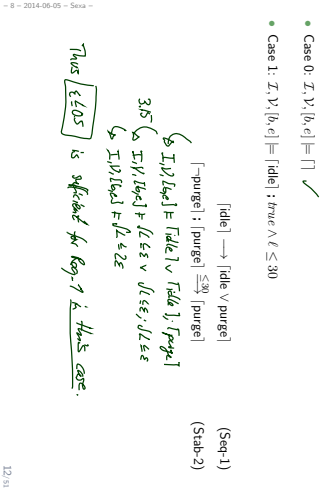 • Case 0: ℐ, 𝒱, [b, e] ⊨ ⌈⌉ ✓
• Case 1: ℐ, 𝒱, [b, e] ⊨ ⌈idle⌉ ; true ∧ ℓ ≤ 30
⌈idle⌉ ⟶ ⌈idle ∨ purge⌉ (Seq-1)
⌈¬purge⌉ ; ⌈purge⌉ ≤30⟶ ⌈purge⌉ (Stab-2)
↳ I,V,[b,e] ⊨ ⌈idle⌉ ∨ ⌈idle⌉ ; ⌈purge⌉
3.15 ↳ I,V,[b,e] ⊨ ∫L ≤ ε ∨ ∫L ≤ ε ; ∫L ≤ ε
↳ I,V,[b,e] ⊨ ∫L ≤ 2ε
Thus ε ≤ 0.5 is sufficient for Req-1 in this case.
– 8 – 2014-06-05 – Sexa –
12/51